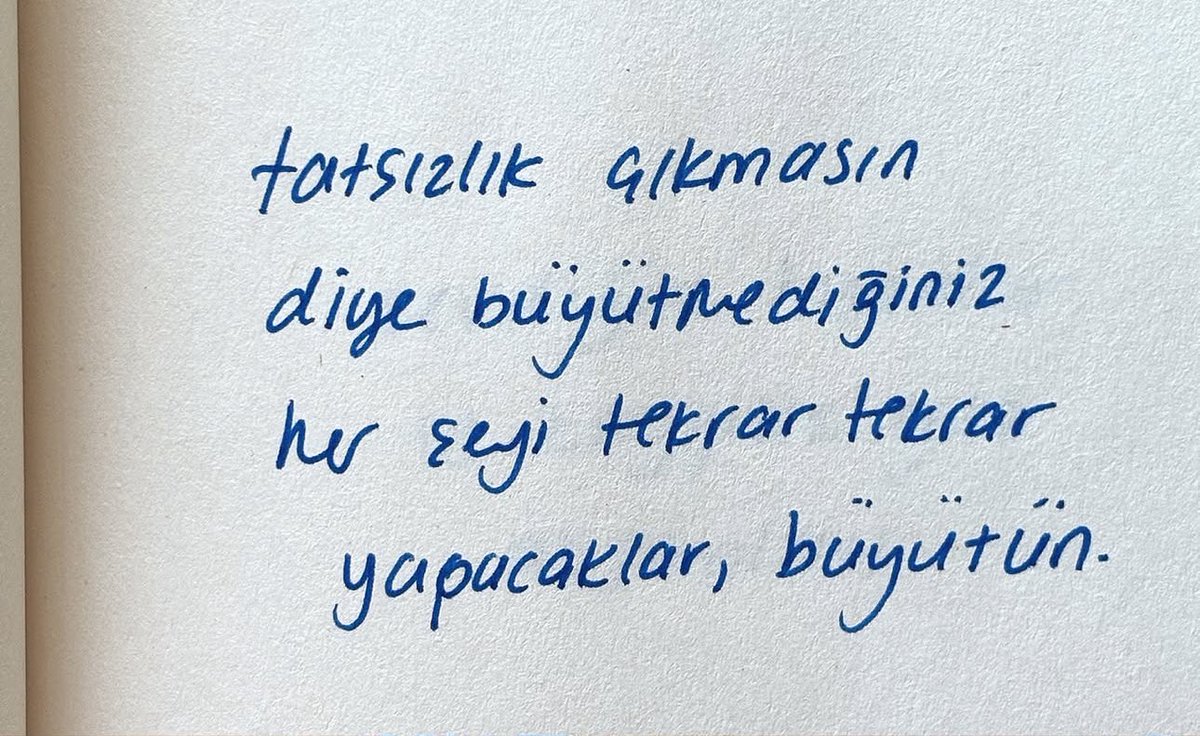 tatsızlık çıkmasın
diye büyütmediğiniz
her şeyi tekrar tekrar
yapacaklar, büyütün.